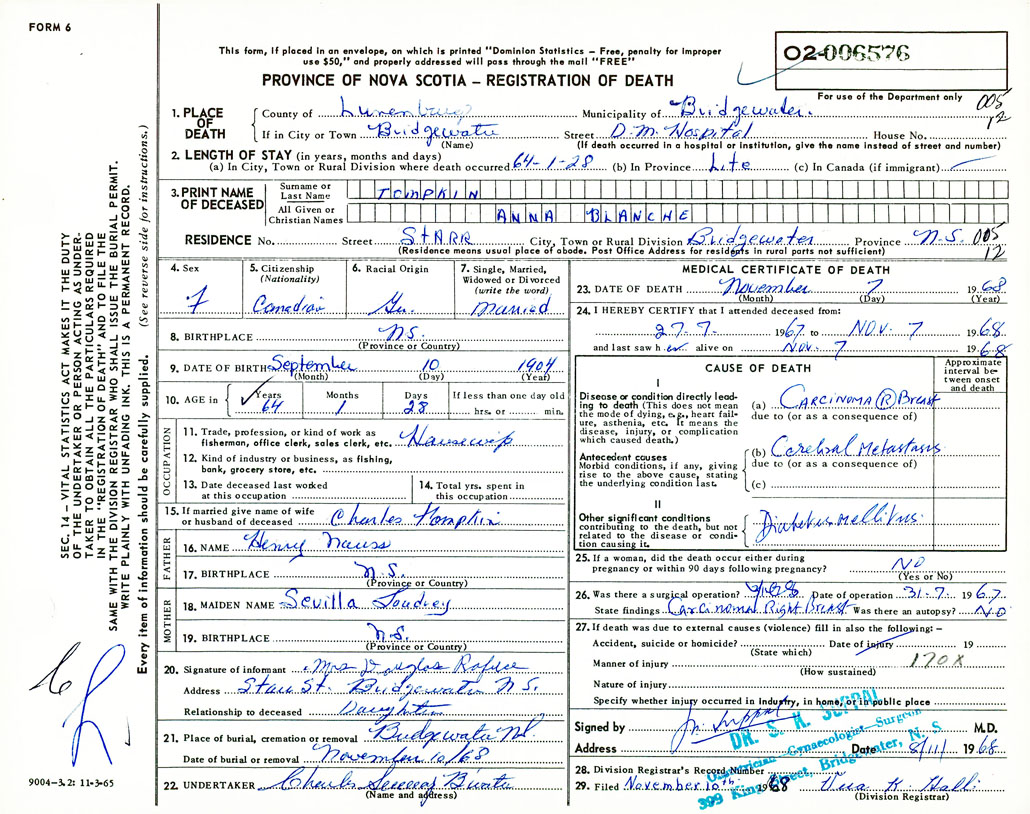 FORM 6
This form, if placed in an envelope, on which is printed "Dominion Statistics – Free, penalty for improper
use $50," and properly addressed will pass through the mail "FREE"
02-006576
PROVINCE OF NOVA SCOTIA – REGISTRATION OF DEATH
For use of the Department only
005
12
1. PLACE OF DEATH
County of Lunenburg Municipality of Bridgewater.
If in City or Town Bridgewater Street D.M. Hospital House No.
(Name) (If death occurred in a hospital or institution, give the name instead of street and number)
2. LENGTH OF STAY (in years, months and days)
(a) In City, Town or Rural Division where death occurred 64-1-28 (b) In Province Life (c) In Canada (if immigrant)
3. PRINT NAME OF DECEASED
Surname or Last Name TOMPKIN
All Given or Christian Names ANNA BLANCHE
RESIDENCE No. Street STARR City, Town or Rural Division Bridgewater Province N.S. 005
(Residence means usual place of abode. Post Office Address for residents in rural parts not sufficient) 12
4. Sex F
5. Citizenship (Nationality) Canadian
6. Racial Origin Ger.
7. Single, Married, Widowed or Divorced (write the word) Married
8. BIRTHPLACE N.S.
(Province or Country)
9. DATE OF BIRTH September 10 1904
(Month) (Day) (Year)
10. AGE in Years Months Days If less than one day old
64 1 28 hrs. or min.
OCCUPATION
11. Trade, profession, or kind of work as fisherman, office clerk, sales clerk, etc. Housewife
12. Kind of industry or business, as fishing, bank, grocery store, etc.
13. Date deceased last worked at this occupation
14. Total yrs. spent in this occupation
15. If married give name of wife or husband of deceased Charles Tompkin
FATHER
16. NAME Henry Nauss
17. BIRTHPLACE N.S.
(Province or Country)
MOTHER
18. MAIDEN NAME Sevilla
19. BIRTHPLACE N.S.
(Province or Country)
20. Signature of informant Mrs Douglas Rafuse
Address Starr St. Bridgewater N.S.
Relationship to deceased Daughter
21. Place of burial, cremation or removal Bridgewater NS
Date of burial or removal November 10/68
22. UNDERTAKER Charles
(Name and address)
MEDICAL CERTIFICATE OF DEATH
23. DATE OF DEATH November 7 1968
(Month) (Day) (Year)
24. I HEREBY CERTIFY that I attended deceased from:
27.7. 1967 to NOV. 7 1968
and last saw her alive on Nov. 7 1968
CAUSE OF DEATH
Approximate interval between onset and death
I
Disease or condition directly leading to death (This does not mean the mode of dying, e.g., heart failure, asthenia, etc. It means the disease, injury, or complication which caused death.)
(a) CARCINOMA (R) Breast
due to (or as a consequence of)
Antecedent causes
Morbid conditions, if any, giving rise to the above cause, stating the underlying condition last.
(b) Cerebral Metastasis
due to (or as a consequence of)
(c)
II
Other significant conditions contributing to the death, but not related to the disease or condition causing it.
Diabetus Mellitus
25. If a woman, did the death occur either during pregnancy or within 90 days following pregnancy? NO
(Yes or No)
26. Was there a surgical operation? yes Date of operation 31-7. 1967.
State findings Carcinoma Right Breast Was there an autopsy? NO
27. If death was due to external causes (violence) fill in also the following: –
Accident, suicide or homicide? Date of injury 19
(State which)
Manner of injury 170X
(How sustained)
Nature of injury
Specify whether injury occurred in Industry, in home, or in public place
Signed by M.D.
DR. S. K. SUPPAL
Gynaecologist-Surgeon
399 King Street, Bridgewater, N. S.
Address Date 8/11/ 1968
28. Division Registrar's Record Number
29. Filed November 10th 1968 Vera K.
(Division Registrar)
SEC. 14 – VITAL STATISTICS ACT MAKES IT THE DUTY
OF THE UNDERTAKER OR PERSON ACTING AS UNDER-
TAKER TO OBTAIN ALL THE PARTICULARS REQUIRED
IN THE "REGISTRATION OF DEATH" AND TO FILE THE
SAME WITH THE DIVISION REGISTRAR WHO SHALL ISSUE THE BURIAL PERMIT.
WRITE PLAINLY WITH UNFADING INK. THIS IS A PERMANENT RECORD.
Every item of information should be carefully supplied. (See reverse side for instructions.)
9004-3.2: 11-3-65